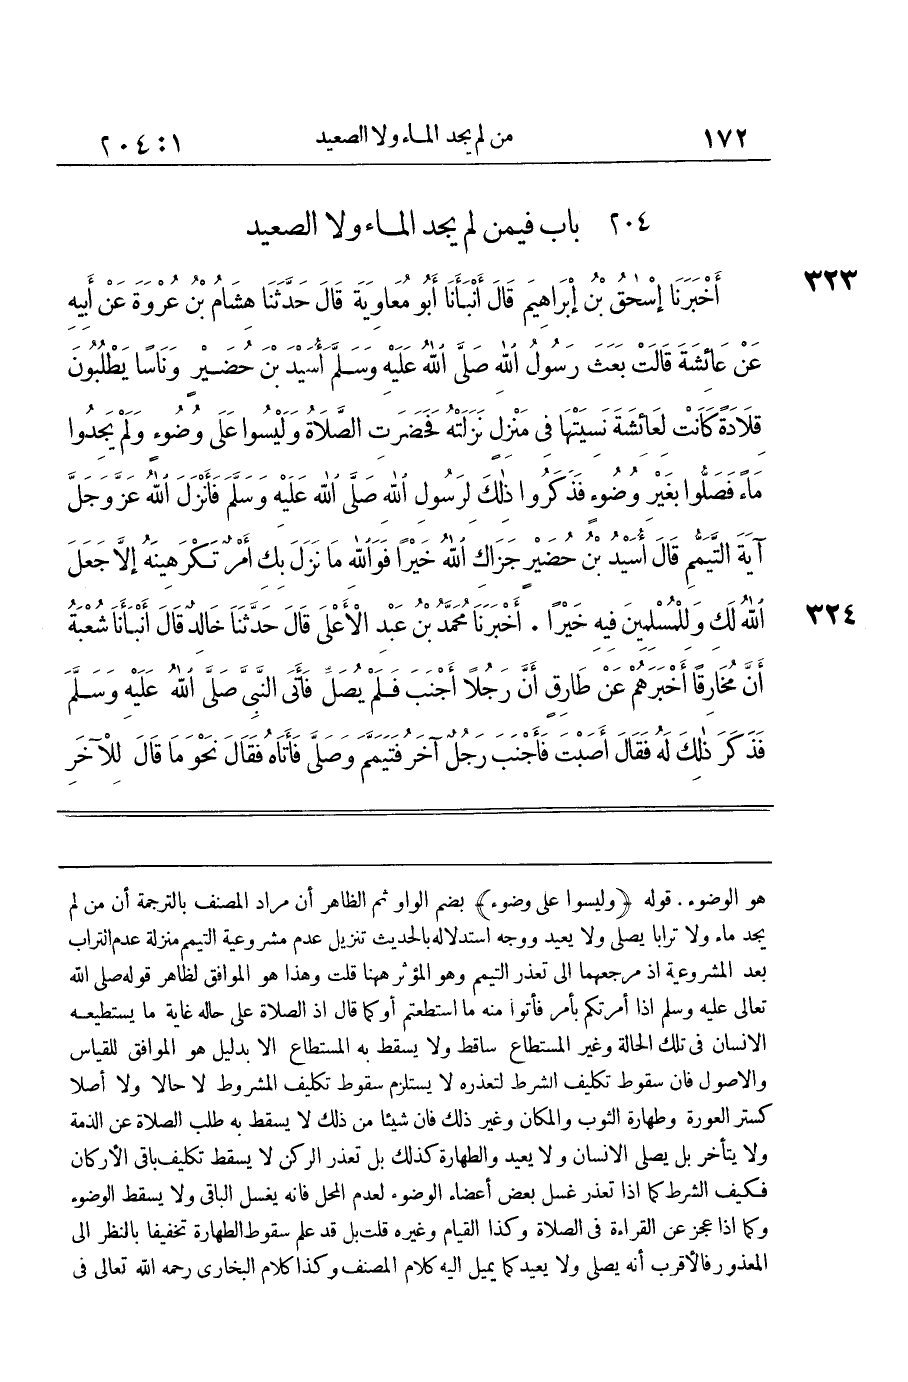 ١٧٢ من لم يجد الماء ولا الصعيد ١ : ٢٠٤
٢٠٤ باب فيمن لم يجد الماء ولا الصعيد
٣٢٣ أَخْبَرَنَا إِسْحٰقُ بْنُ إِبْرَاهِيمَ قَالَ أَنْبَأَنَا أَبُو مُعَاوِيَةَ قَالَ حَدَّثَنَا هِشَامُ بْنُ عُرْوَةَ عَنْ أَبِيهِ
عَنْ عَائِشَةَ قَالَتْ بَعَثَ رَسُولُ اللهِ صَلَّى اللهُ عَلَيْهِ وَسَلَّمَ أُسَيْدَ بْنَ حُضَيْرٍ وَنَاسًا يَطْلُبُونَ
قِلَادَةً كَانَتْ لِعَائِشَةَ نَسِيَتْهَا فِى مَنْزِلٍ نَزَلَتْهُ فَحَضَرَتِ الصَّلَاةُ وَلَيْسُوا عَلَى وُضُوءٍ وَلَمْ يَجِدُوا
مَاءً فَصَلَّوْا بِغَيْرِ وُضُوءٍ فَذَكَرُوا ذٰلِكَ لِرَسُولِ اللهِ صَلَّى اللهُ عَلَيْهِ وَسَلَّمَ فَأَنْزَلَ اللهُ عَزَّ وَجَلَّ
آيَةَ التَّيَمُّمِ قَالَ أُسَيْدُ بْنُ حُضَيْرٍ جَزَاكِ اللهُ خَيْرًا فَوَاللهِ مَا نَزَلَ بِكِ أَمْرٌ تَكْرَهِينَهُ إِلَّا جَعَلَ
٣٢٤ اللهُ لَكِ وَلِلْمُسْلِمِينَ فِيهِ خَيْرًا . أَخْبَرَنَا مُحَمَّدُ بْنُ عَبْدِ الْأَعْلَى قَالَ حَدَّثَنَا خَالِدٌ قَالَ أَنْبَأَنَا شُعْبَةُ
أَنَّ مُخَارِقًا أَخْبَرَهُمْ عَنْ طَارِقٍ أَنَّ رَجُلًا أَجْنَبَ فَلَمْ يُصَلِّ فَأَتَى النَّبِىَّ صَلَّى اللهُ عَلَيْهِ وَسَلَّمَ
فَذَكَرَ ذٰلِكَ لَهُ فَقَالَ أَصَبْتَ فَأَجْنَبَ رَجُلٌ آخَرُ فَتَيَمَّمَ وَصَلَّى فَأَتَاهُ فَقَالَ نَحْوَ مَا قَالَ لِلْآخَرِ
هو الوضوء . قوله ﴿وليسوا على وضوء﴾ بضم الواو ثم الظاهر أن مراد المصنف بالترجمة أن من لم
يجد ماء ولا ترابا يصلى ولا يعيد ووجه استدلاله بالحديث تنزيل عدم مشروعية التيمم منزلة عدم التراب
بعد المشروعية اذ مرجعهما الى تعذر التيمم وهو المؤثر ههنا قلت وهذا هو الموافق لظاهر قوله صلى الله
تعالى عليه وسلم اذا أمرتكم بأمر فأتوا منه ما استطعتم أو كما قال اذ الصلاة على حاله غاية ما يستطيعه
الانسان فى تلك الحالة وغير المستطاع ساقط ولا يسقط به المستطاع الا بدليل هو الموافق للقياس
والاصول فان سقوط تكليف الشرط لتعذره لا يستلزم سقوط تكليف المشروط لا حالا ولا أصلا
كستر العورة وطهارة الثوب والمكان وغير ذلك فان شيئا من ذلك لا يسقط به طلب الصلاة عن الذمة
ولا يتأخر بل يصلى الانسان ولا يعيد والطهارة كذلك بل تعذر الركن لا يسقط تكليف باقى الأركان
فكيف الشرط كما اذا تعذر غسل بعض أعضاء الوضوء لعدم المحل فانه يغسل الباقى ولا يسقط الوضوء
وكما اذا عجز عن القراءة فى الصلاة وكذا القيام وغيره قلت بل قد علم سقوط الطهارة تخفيفا بالنظر الى
المعذور فالأقرب أنه يصلى ولا يعيد كما يميل اليه كلام المصنف وكذا كلام البخارى رحمه الله تعالى فى